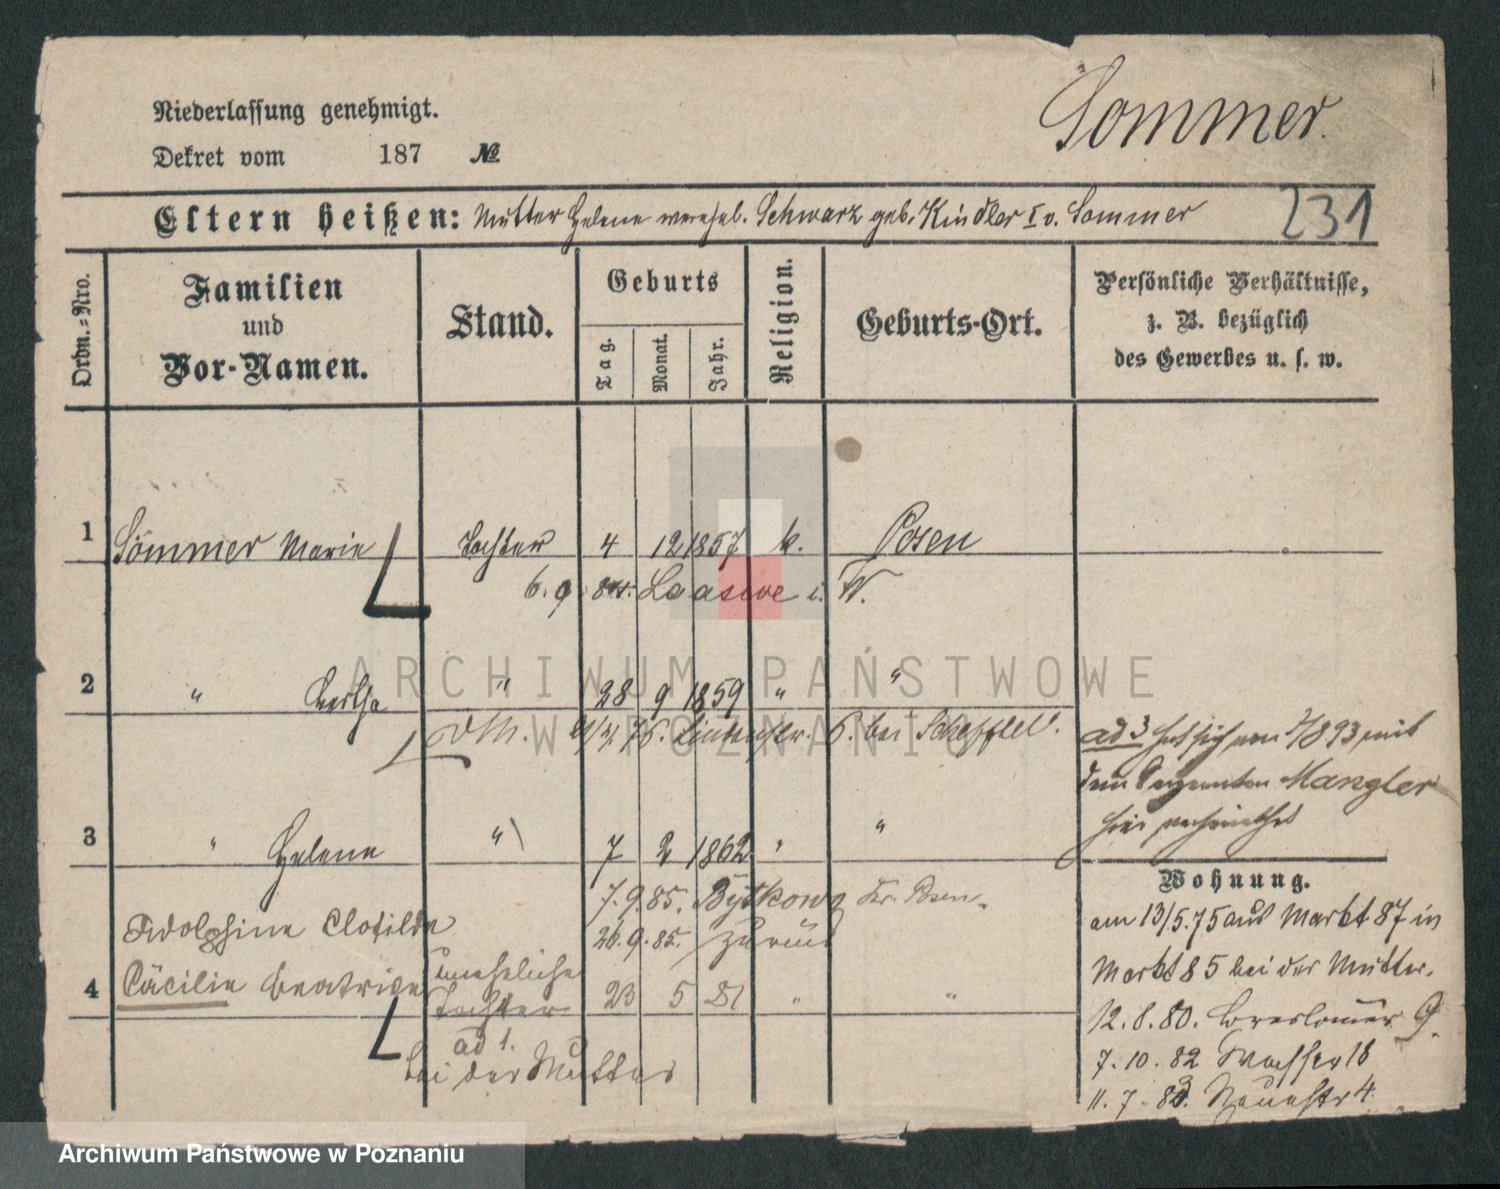 Sommer.
Niederlassung genehmigt.
Dekret vom 187 №
231
Eltern heißen: Mutter Helene verehel. Schwarz geb. Kindler I v. Sommer
Ordn.=Nro.
Familien
und
Vor-Namen.
Stand.
Geburts
Tag.
Monat.
Jahr.
Religion.
Geburts-Ort.
Persönliche Verhältnisse,
z. B. bezüglich
des Gewerbes u. s. w.
1 Sommer Marie Tochter 4 12 1857 k. Posen
6. 9. i. W.
2 " Bertha " 28 9 1859 " "
bei Scheffler.
ad 3 hat sich mit
dem Sergeanten Mangler
hier verheirathet
3 " Helene " 7 2 1862 " "
7. 9. 85. Bytkowo Kr. Posen.
26. 9. 85. zurück
Adolphine Clotilde
4 Cäcilie Beatrice uneheliche Tochter 23 5 81 " "
ad 1.
bei der Mutter
Wohnung.
am 13/5.75 aus Markt 87 in
Markt 85 bei der Mutter.
12. 8. 80. Breslauer 9.
7. 10. 82 Wasser 18
11. 7. 83. Neuestr 4.
ARCHIWUM PAŃSTWOWE
W POZNANIU
Archiwum Państwowe w Poznaniu